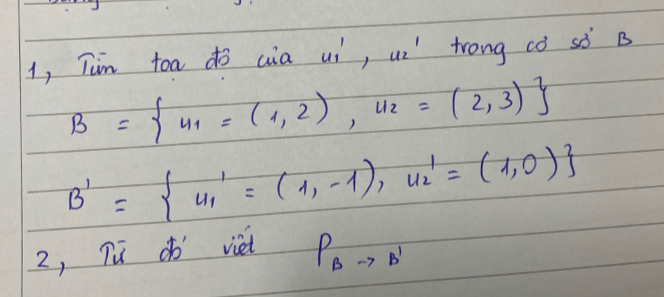 1, Tìm toạ độ của u1', u2' trong cơ sở B
B = { u1 = (1,2), u2 = (2,3) }
B' = { u1' = (1,-1), u2' = (1,0) }
2, Từ đó viết P B → B'